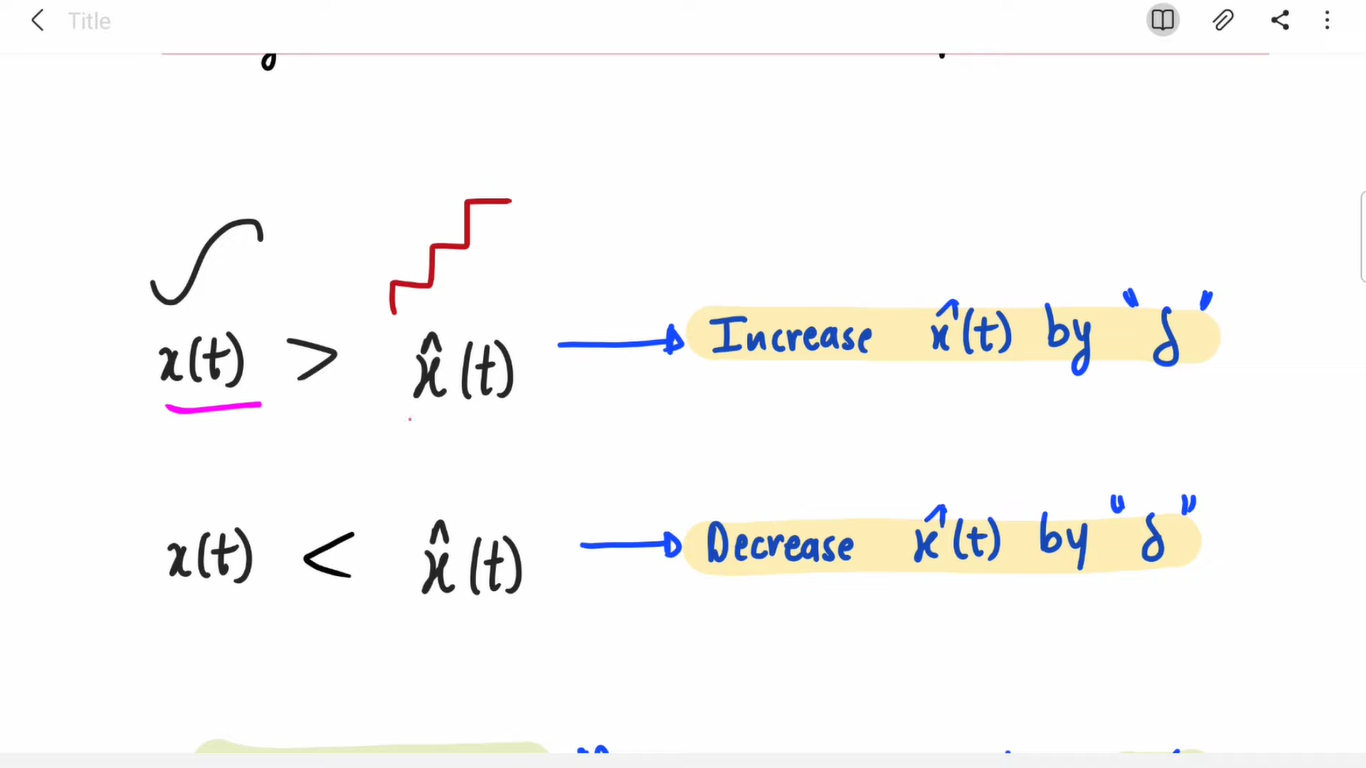 Title
x(t) > x̂(t) Increase x̂(t) by "δ"
x(t) < x̂(t) Decrease x̂(t) by "δ"